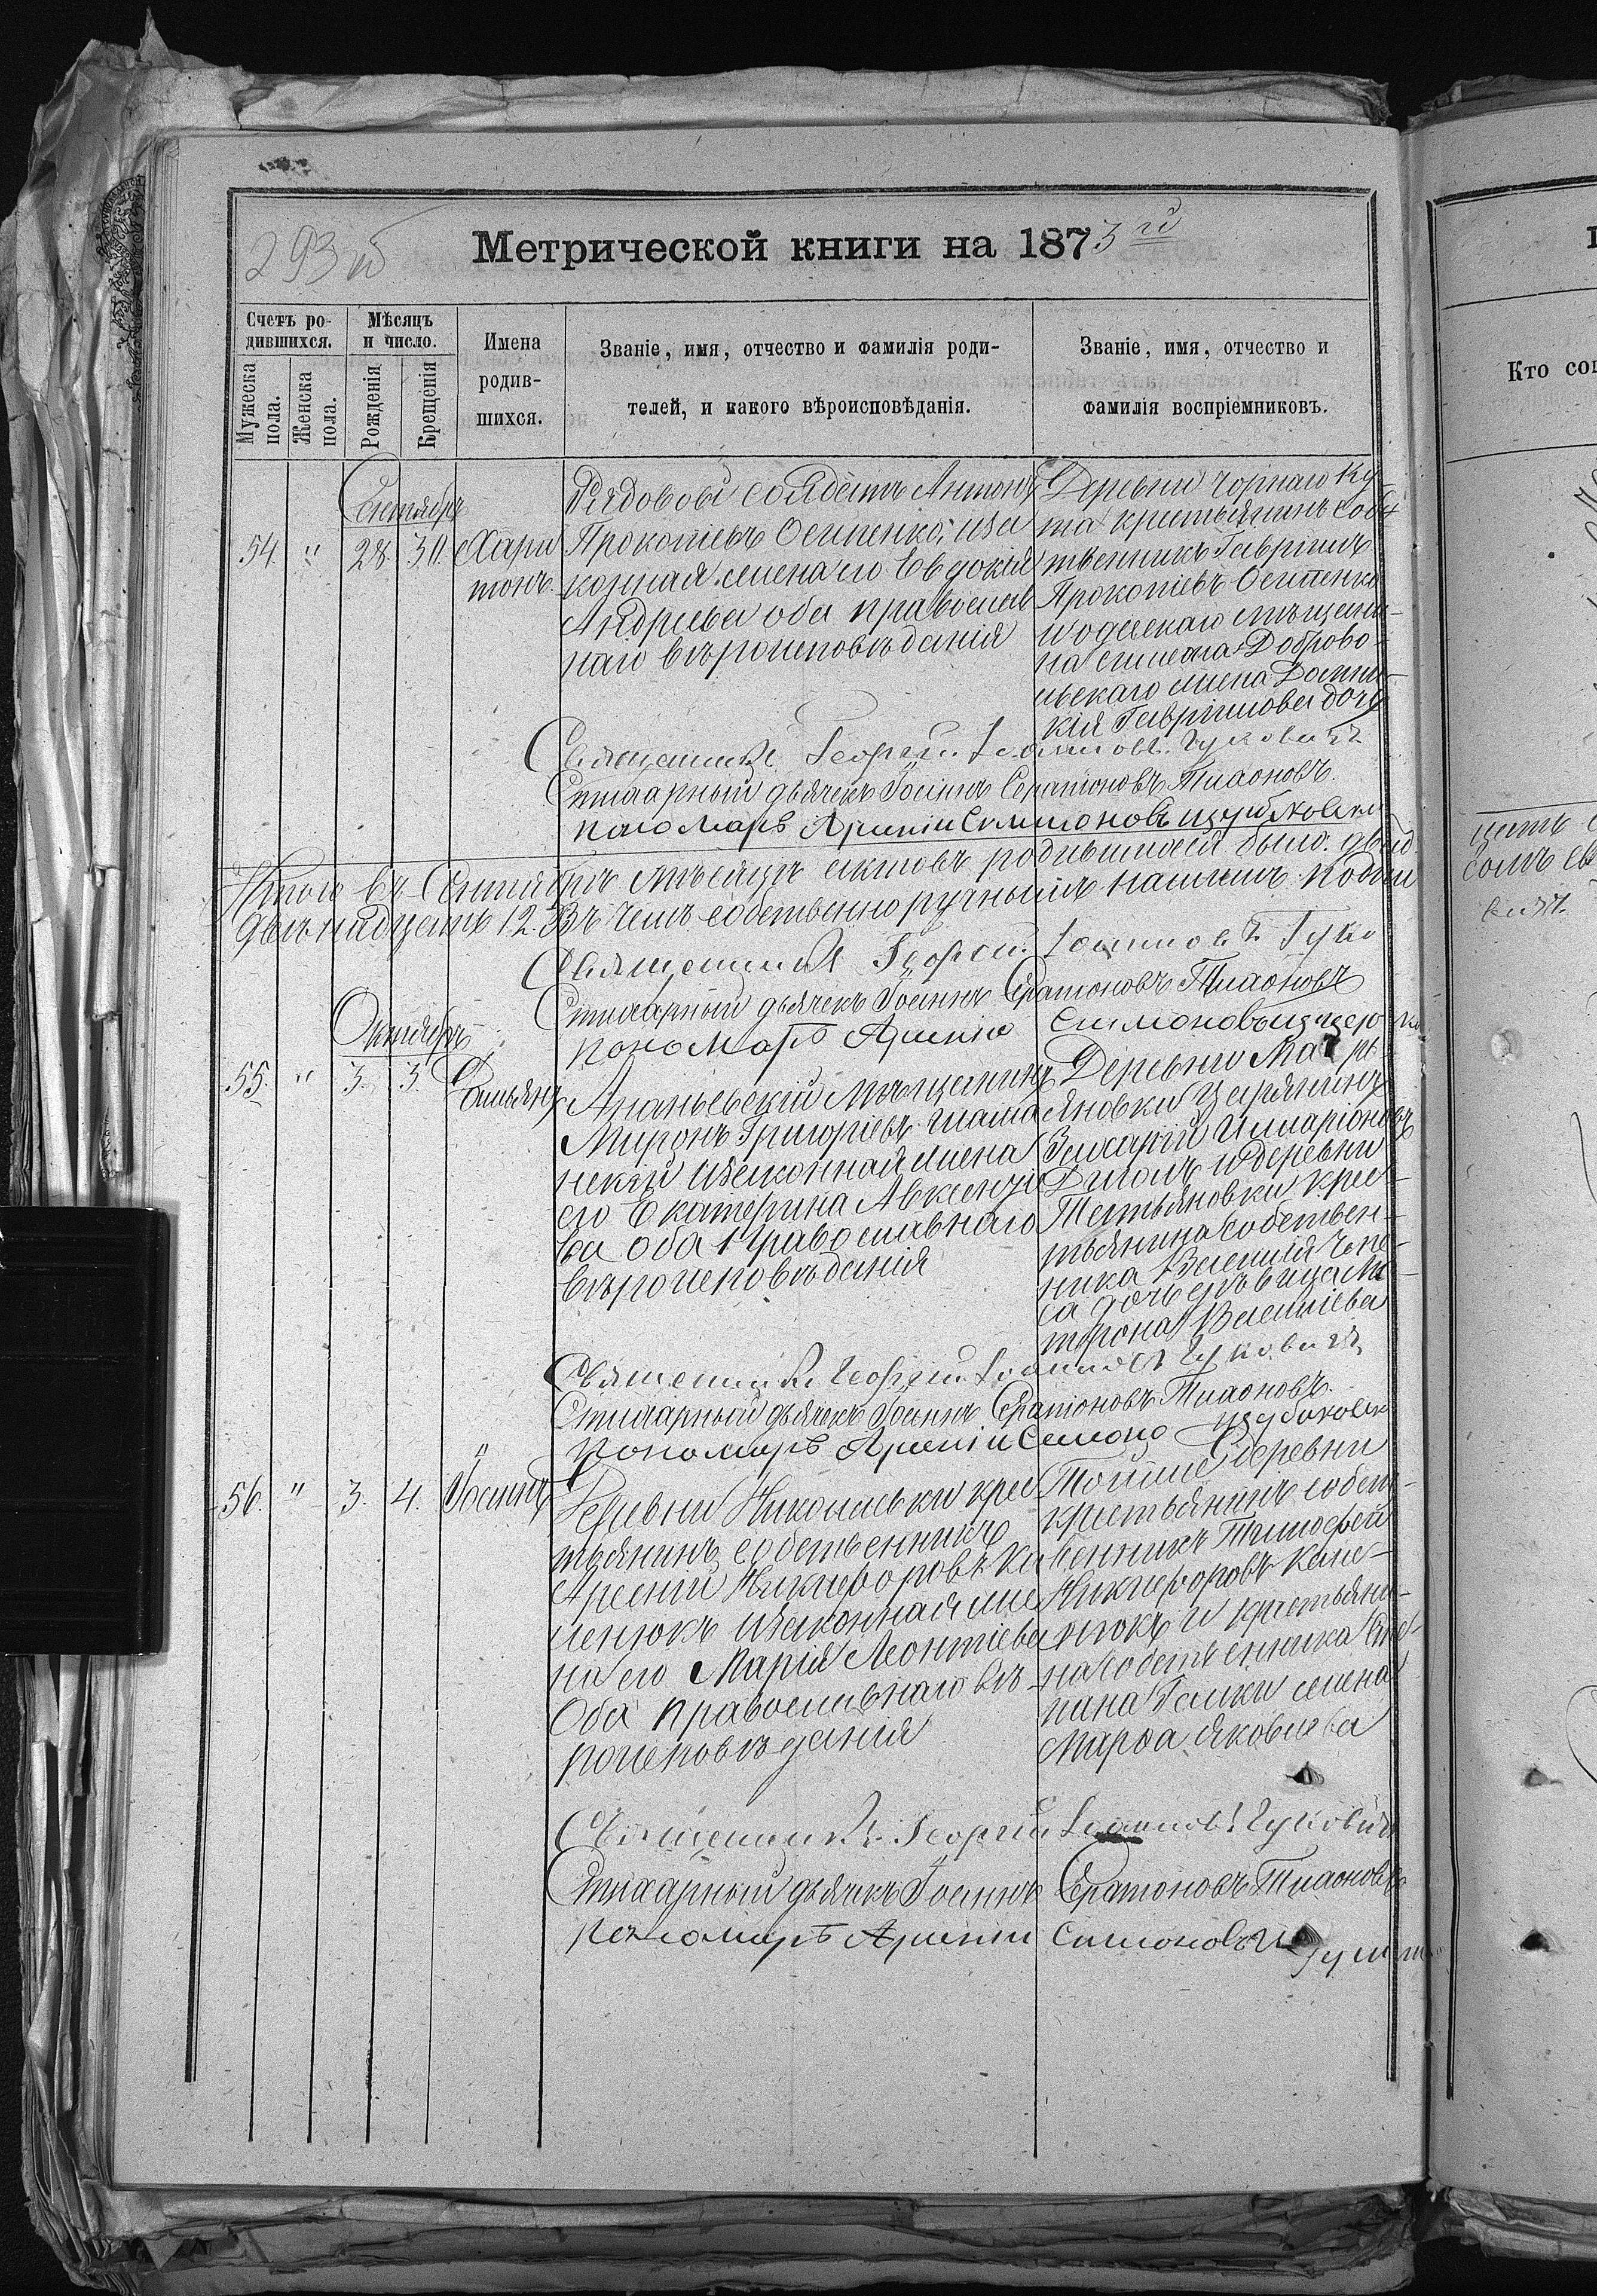 293 об
Метрической книги на 1873 гд
Счетъ ро-
дившихся.
Мужеска
пола.
Женска
пола.
Мѣсяцъ
и число.
Рожденія
Крещенія
Имена
родив-
шихся.
Званіе, имя, отчество и фамилія роди-
телей, и какого вѣроисповѣданія.
Званіе, имя, отчество и
фамилія воспріемниковъ.
Кто сов
Сентябрь
54. " 28. 30. Хари
тонъ.
Рядовой солдатъ Антонъ
Прокопіевъ Осипенко, иза
конная жена его Евдокія
Андреева оба православ
наго вѣроисповѣданія
Деревни Чорнаго Ку-
та крестьянинъ собс
твенникъ Гавріилъ
Прокопіевъ Осипенко
и одескаго мѣщани-
на Доброво-
льскаго жена
кія Гавріилова
Священникъ Георгій Іоанновъ
Стихарный дьячекъ Іоаннъ Серапіоновъ Тихоновъ.
пономарь Арсеній Симоновъ
Итого въ Сентябрѣ мѣсяцѣ актовъ родившихся было.
двѣнадцать 12. Въ чемъ собственноручнымъ нашимъ подпи
Священникъ Георгій Іоанновъ
Стихарный дьячекъ Іоаннъ Серапіоновъ Тихоновъ
пономарь Арсеній Симоновъ
Октябрь
55. " 3. 3. Дамьянъ
Ананьевскій мѣщанинъ
Миронъ Григоріевъ
нскій изаконная жена
его Екатерина Авксентіе
ва оба православнаго
вѣроисповѣданія
Деревни Мар
яновки Царянинъ
Захарій Илларіоновъ
и деревни
Татьяновки крес-
тьянина собствен-
ника Василія
са дочь дѣвица Ма
трона Васильева
Священникъ Георгій Іоанновъ
Стихарный дьячекъ Іоаннъ Серапіоновъ Тихоновъ.
пономарь Арсеній Симоно
"
56. " 3. 4. Іоаннъ
Деревни Николаевки крес
тьянинъ собственникъ
Арсеній Никифоровъ Ка
ленюкъ изаконная же
на его Марія Леонтіева
Оба православнаго вѣ
роисповѣданія
Тойже деревни
крестьянинъ собст-
венникъ Тимофей
Никифоровъ Кале-
нюкъ и крестьяни-
на собственника Сте-
пана Галки жена
Марфа Яковлева
Священникъ Георгій Іоанновъ
Стихарный дьячекъ Іоаннъ Серапіоновъ Тихоновъ
пономарь Арсеній Симоновъ